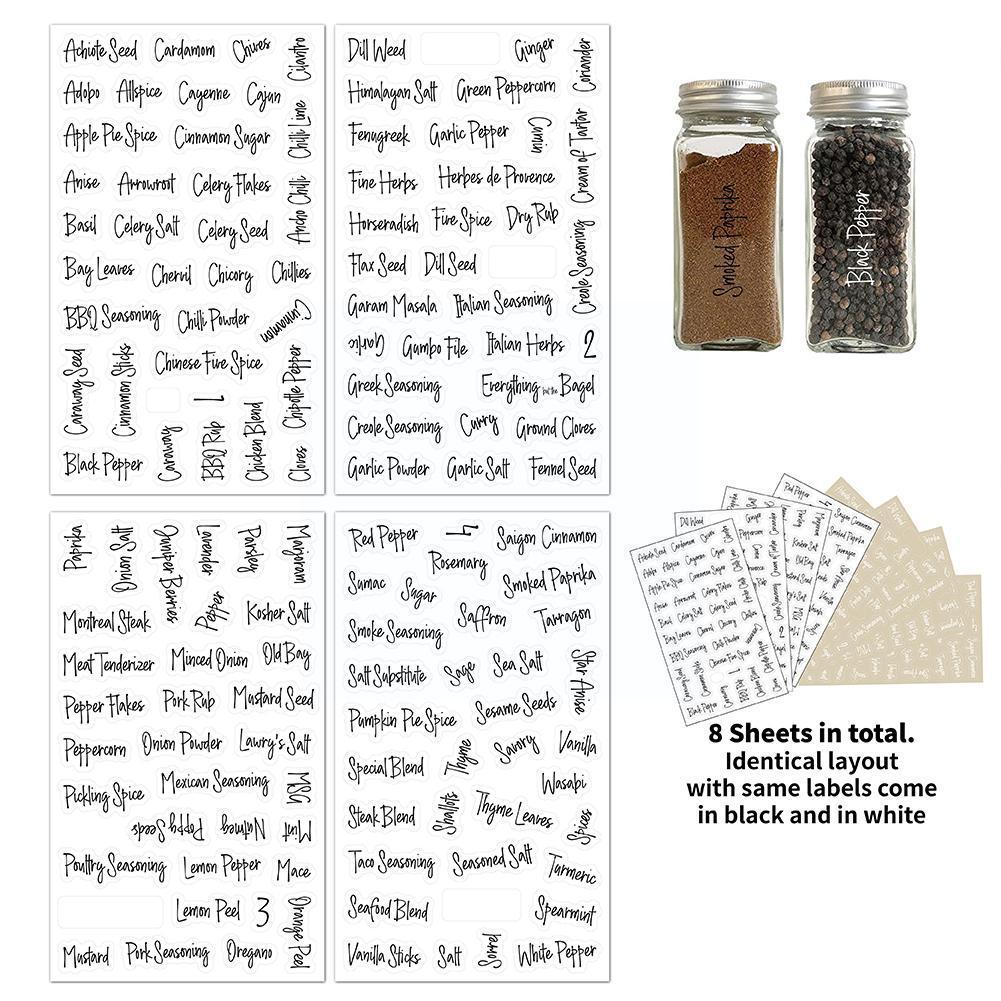 Achiote Seed Cardamom Chives Cilantro
Adobo Allspice Cayenne Cajun
Apple Pie Spice Cinnamon Sugar Chilli Lime
Anise Arrowroot Celery Flakes Ancho Chilli
Basil Celery Salt Celery Seed
Bay Leaves Chervil Chicory Chillies
BBQ Seasoning Chilli Powder Cinnamon
Caraway Seed Cinnamon Sticks Chinese Five Spice Chipotle Pepper
1
Black Pepper Caraway BBQ Rup Chicken Blend Cloves
Dill Weed Ginger Coriander
Himalayan Salt Green Peppercorn
Fenugreek Garlic Pepper Cumin Cream of Tartar
Fine Herbs Herbes de Provence
Horseradish Five Spice Dry Rub
Flax Seed Dill Seed Creole Seasoning
Garam Masala Italian Seasoning
Garlic Gumbo File Italian Herbs 2
Greek Seasoning Everything but the Bagel
Creole Seasoning Curry Ground Cloves
Garlic Powder Garlic Salt Fennel Seed
Smoked Paprika
Black Pepper
Paprika Onion Salt Juniper Berries Lavender Parsley Marjoram
Montreal Steak Pepper Kosher Salt
Meat Tenderizer Minced Onion Old Bay
Pepper Flakes Pork Rub Mustard Seed
Peppercorn Onion Powder Lawry's Salt
Pickling Spice Mexican Seasoning MSG
Poppy Seeds Nutmeg Mint
Poultry Seasoning Lemon Pepper Mace
Lemon Peel 3 Orange Peel
Mustard Pork Seasoning Oregano
Red Pepper 4 Saigon Cinnamon
Rosemary
Sumac Sugar Smoked Paprika
Smoke Seasoning Saffron Tarragon
Salt Substitute Sage Sea Salt Star Anise
Pumpkin Pie Spice Sesame Seeds
Special Blend Thyme Savory Vanilla
Wasabi
Steak Blend Shallots Thyme Leaves Spices
Taco Seasoning Seasoned Salt Turmeric
Seafood Blend Spearmint
Vanilla Sticks Salt Sorrel White Pepper
8 Sheets in total.
Identical layout
with same labels come
in black and in white